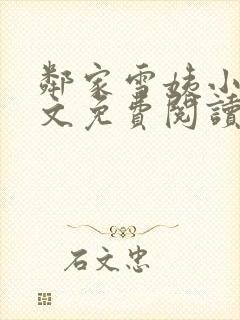 鄰家雪姨小
文免費閱讀
石文忠